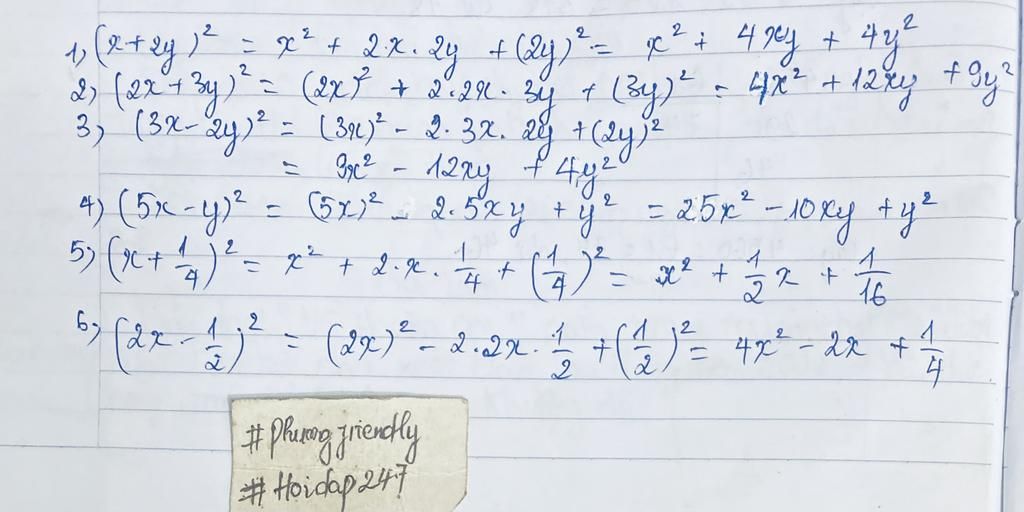 1) (x+2y)² = x² + 2.x.2y + (2y)² = x² + 4xy + 4y²
2) (2x+3y)² = (2x)² + 2.2x.3y + (3y)² = 4x² + 12xy + 9y²
3) (3x-2y)² = (3x)² - 2.3x.2y + (2y)²
= 9x² - 12xy + 4y²
4) (5x-y)² = (5x)² - 2.5xy + y² = 25x² - 10xy + y²
5) (x+1/4)² = x² + 2.x.1/4 + (1/4)² = x² + 1/2x + 1/16
6) (2x-1/2)² = (2x)² - 2.2x.1/2 + (1/2)² = 4x² - 2x + 1/4
# Phuong friendly
# Hoidap247